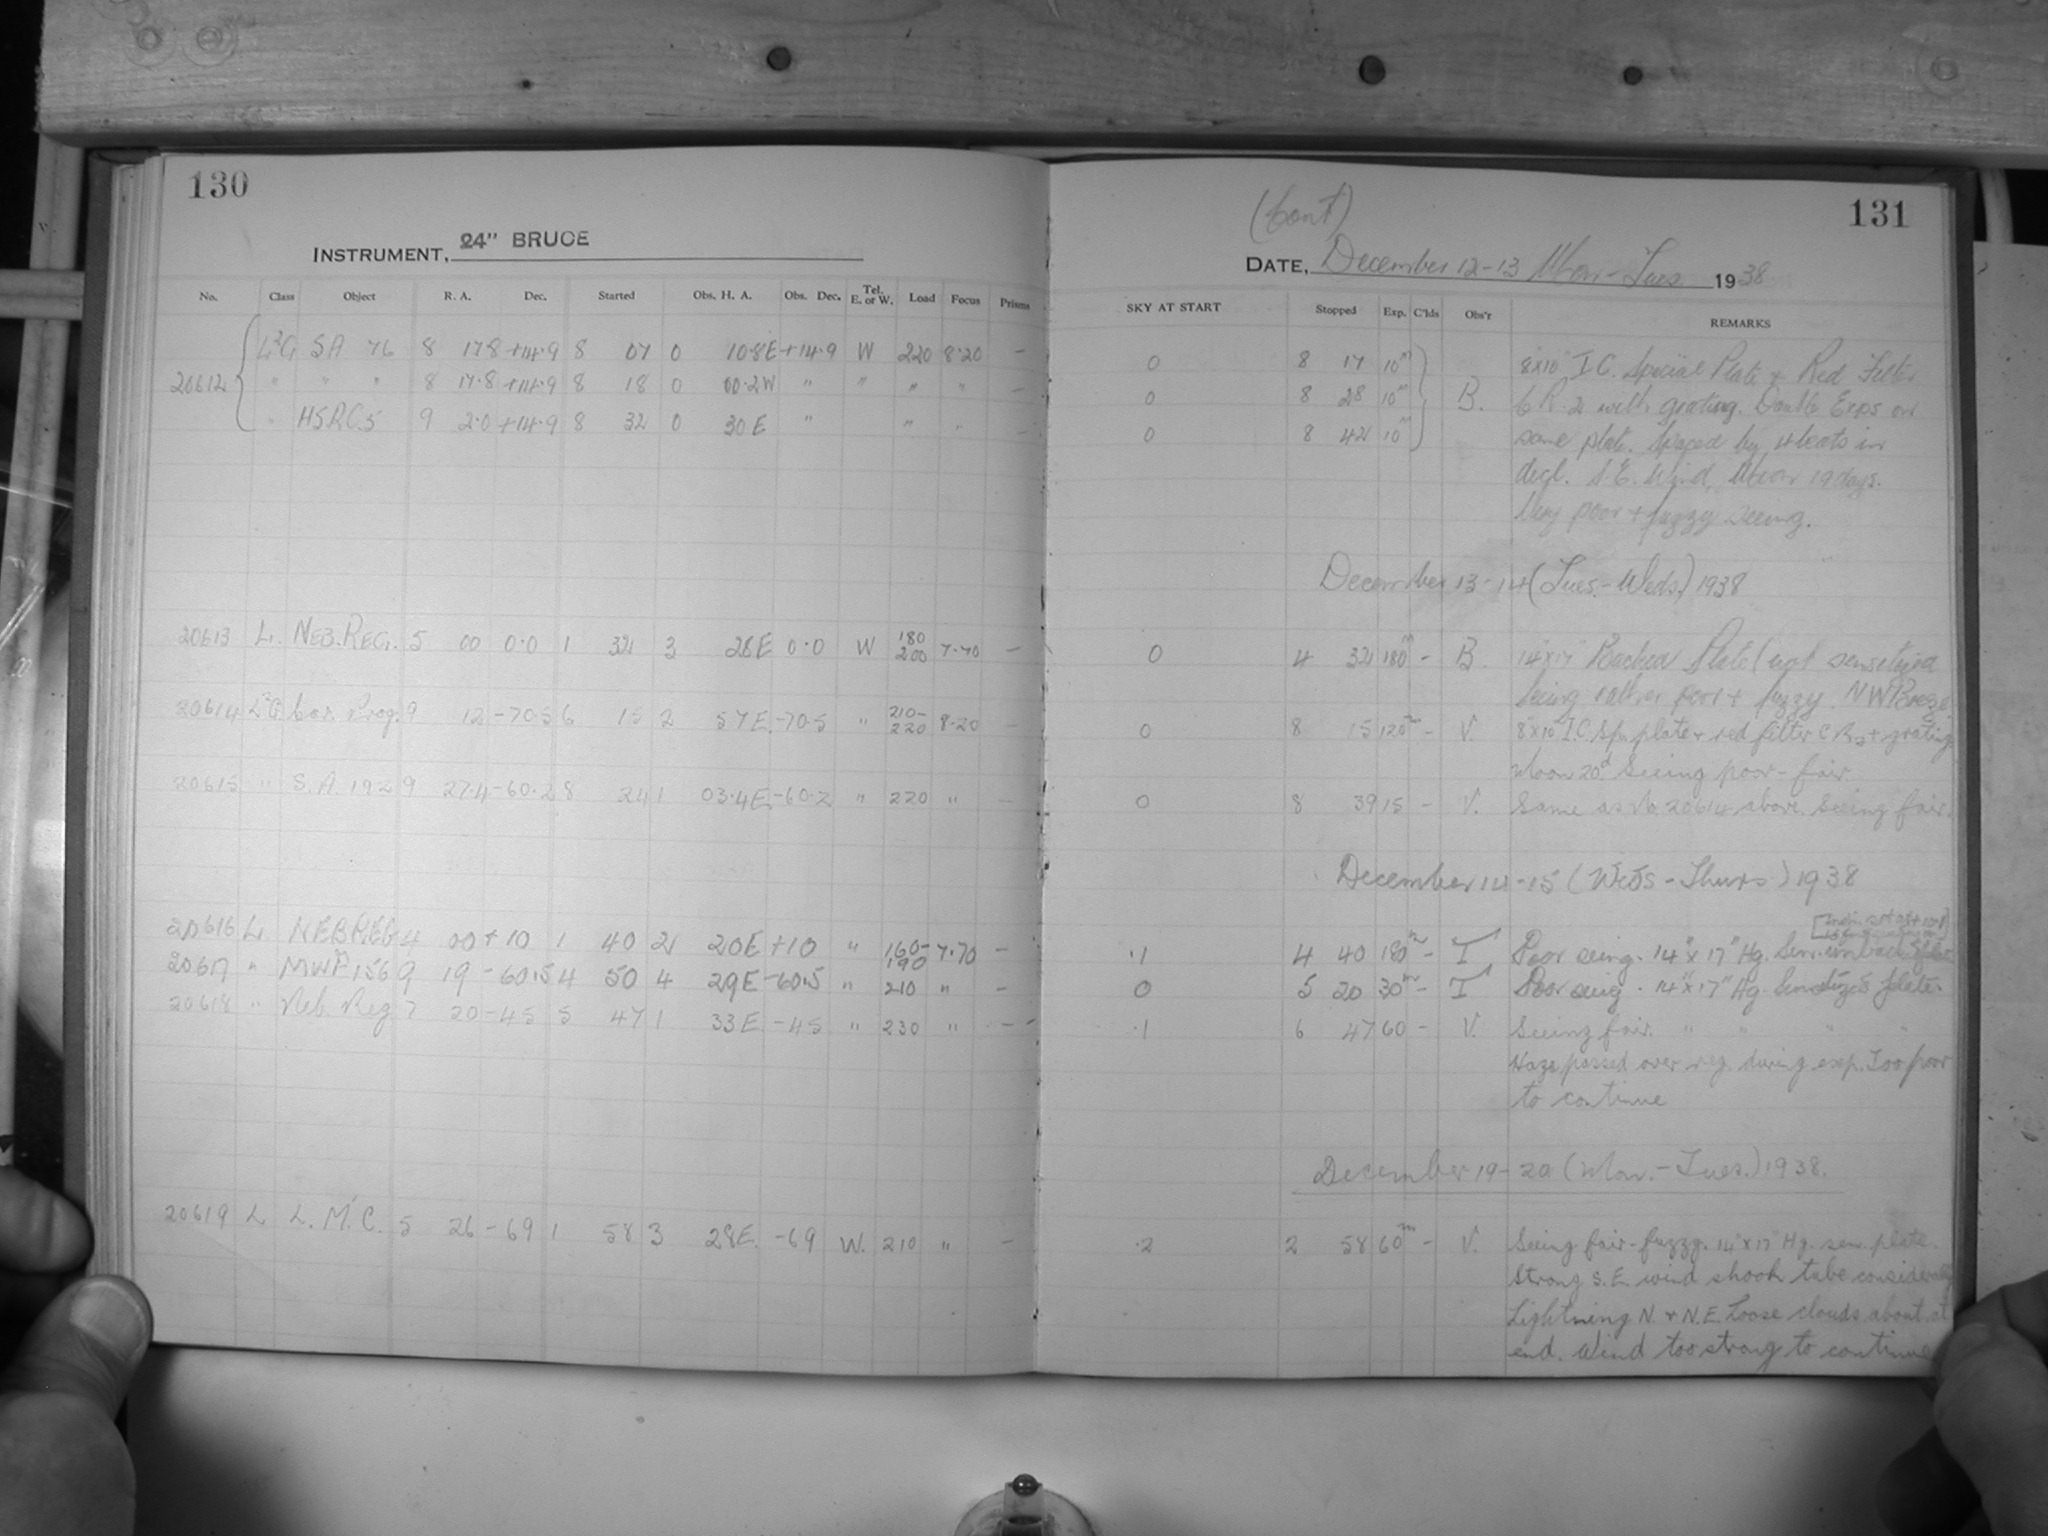 130
INSTRUMENT, 24" BRUCE
No. Class Object R. A. Dec. Started Obs. H. A. Obs. Dec. Tel. E. or W. Load Focus Prisms
L²G SA 76 8 17.8 +14.9 8 07 0 10.8E +14.9 W 220 8.20 —
20612 " " " 8 17.8 +14.9 8 18 0 00.2W " " " "
" HSRC5 9 2.0 +14.9 8 32 0 30E " " "
20613 L. NEB.REG. 5 00 0.0 1 32 3 28E 0.0 W 180 200 7.70 —
20614 L²G Car. Prog. 9 12 -70.5 6 15 2 57E -70.5 " 210- 220 8.20
20615 " S.A. 192 9 27.4 -60.2 8 24 1 03.4E -60.2 " 220 " —
20616 L. NEB.REG 4 00 +10 1 40 2 20E +10 " 160- 190 7.70 —
20617 " MWF 156 9 19 -60.5 4 50 4 29E -60.5 " 210 " —
20618 " Neb. Reg 7 20 -45 5 47 1 33E -45 " 230 " —
20619 L L.M.C. 5 26 -69 1 58 3 28E. -69 W. 210 " —
131
(Cont)
DATE, December 12-13 Mon-Tues 1938
SKY AT START Stopped Exp. C'lds Obs'r REMARKS
0 8 17 10ᵐ 8"x10" I.C. Special Plate + Red Filter
0 8 28 10ᵐ B. C R.2 with grating. Double Exps on
0 8 42 10ᵐ same plate. Spaced by 4 beats in
decl. S.E. Wind, Moon 19 days.
Very poor + fuzzy seeing.
December 13-14 (Tues.-Weds.) 1938
0 4 32 180ᵐ - B. 14"x17" Backed Plate (not sensitized
Seeing rather poor + fuzzy. NW Breeze.
0 8 15 120ᵐ - V. 8"x10" I.C. Sp. plate + red filter C R2 + grating
Moon 20ᵈ Seeing poor-fair.
0 8 39 15 - V. Same as No 20614 above. Seeing fair.
December 14-15 (Weds-Thurs) 1938
.1 4 40 180ᵐ - T Poor seeing. 14"x17" Hg. Sen. unbacked plate
0 5 20 30ᵐ - T Poor seeing. 14"x17" Hg. Sensitized plate.
.1 6 47 60 - V. Seeing fair. " " " "
Haze passed over reg. during exp. Too poor
to continue
December 19-20 (Mon.-Tues.) 1938.
.2 2 58 60ᵐ - V. Seeing fair-fuzzy. 14"x17" Hg. sen. plate.
Strong S.E. wind shook tube considerably
Lightning N + N.E. Loose clouds about at
end. Wind too strong to continue